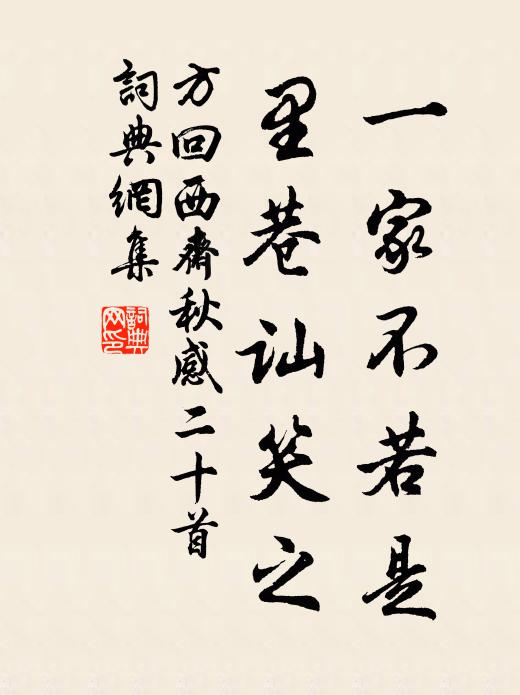 一家不若是
里巷訕笑之
方回西齋秋感二十首
詞典網集
詞典
网印